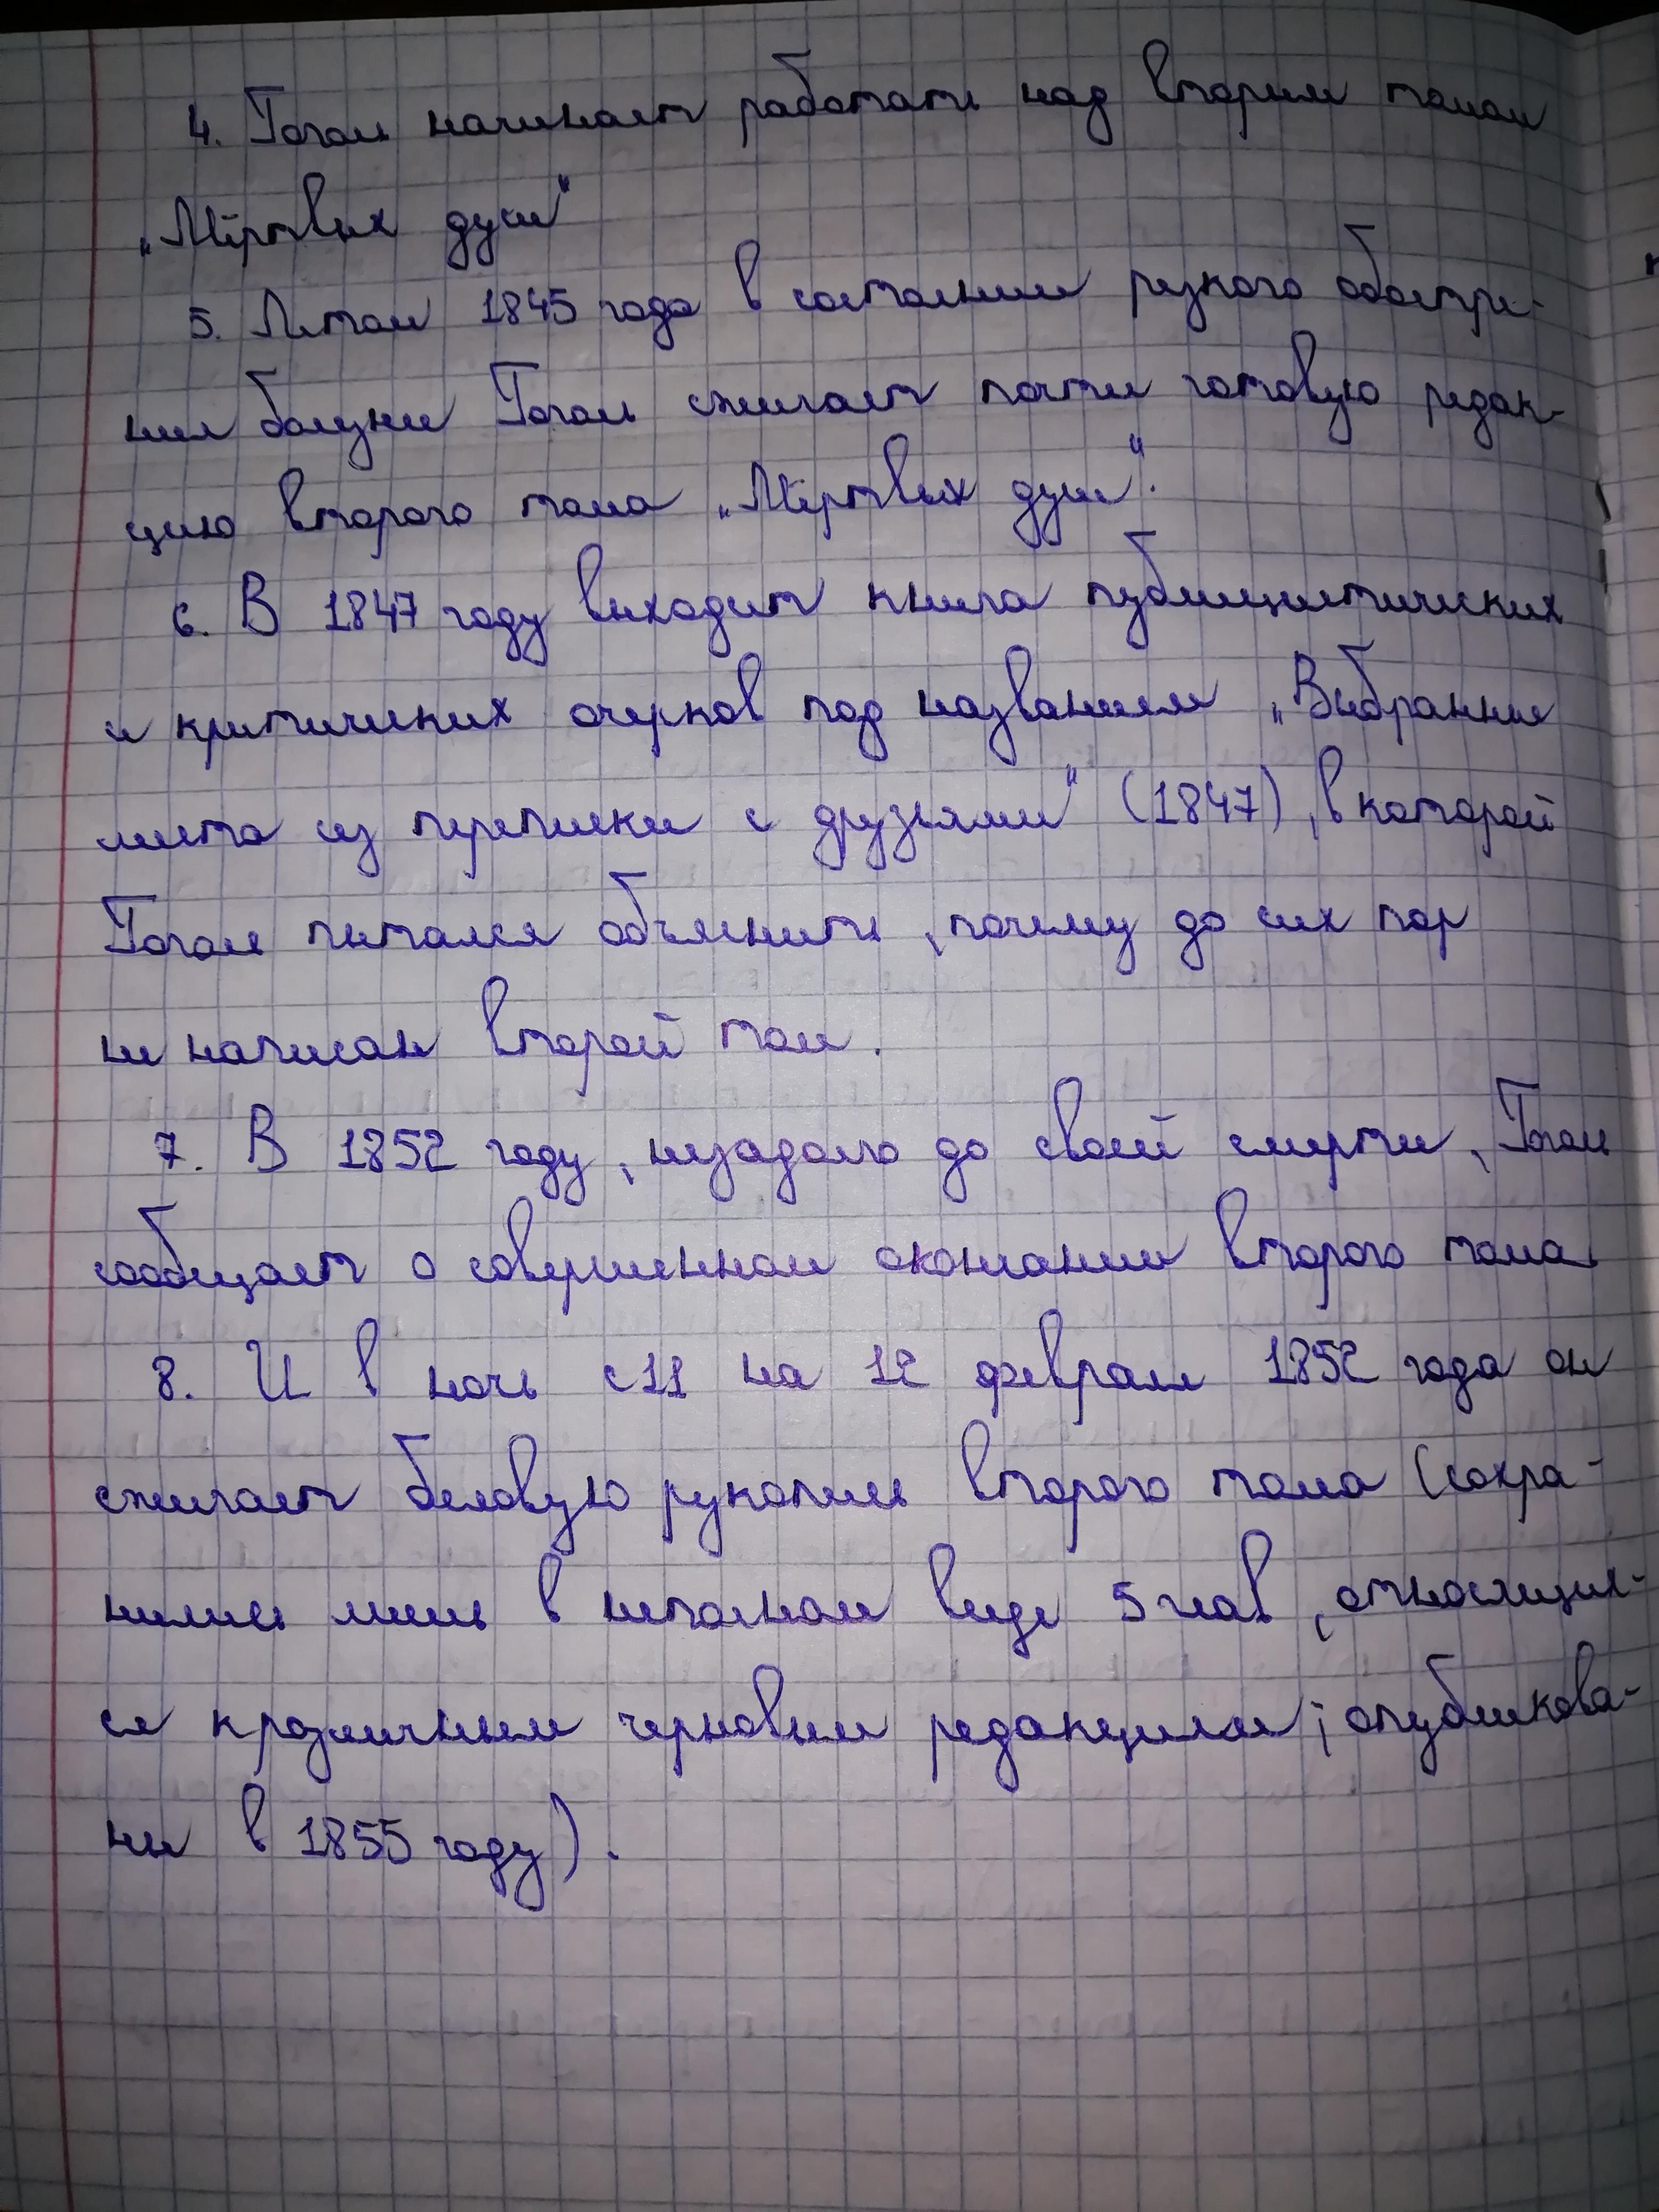 4. Гоголь начинает работать над вторым томом
„Мёртвых душ"
5. Летом 1845 года в состоянии резкого обостре-
ния болезни Гоголь сжигает почти готовую редак-
цию второго тома „Мёртвых душ".
6. В 1847 году выходит книга публицистических
и критических очерков под названием „Выбранные
места из переписки с друзьями" (1847), в которой
Гоголь пытался объяснить, почему до сих пор
не написан второй том.
7. В 1852 году, незадолго до своей смерти, Гоголь
сообщает о совершенном окончании второго тома.
8. И в ночь с 11 на 12 февраля 1852 года он
сжигает беловую рукопись второго тома (сохра-
нились лишь в неполном виде 5 глав, относящих-
ся к различным черновым редакциям; опубликова-
ны в 1855 году).